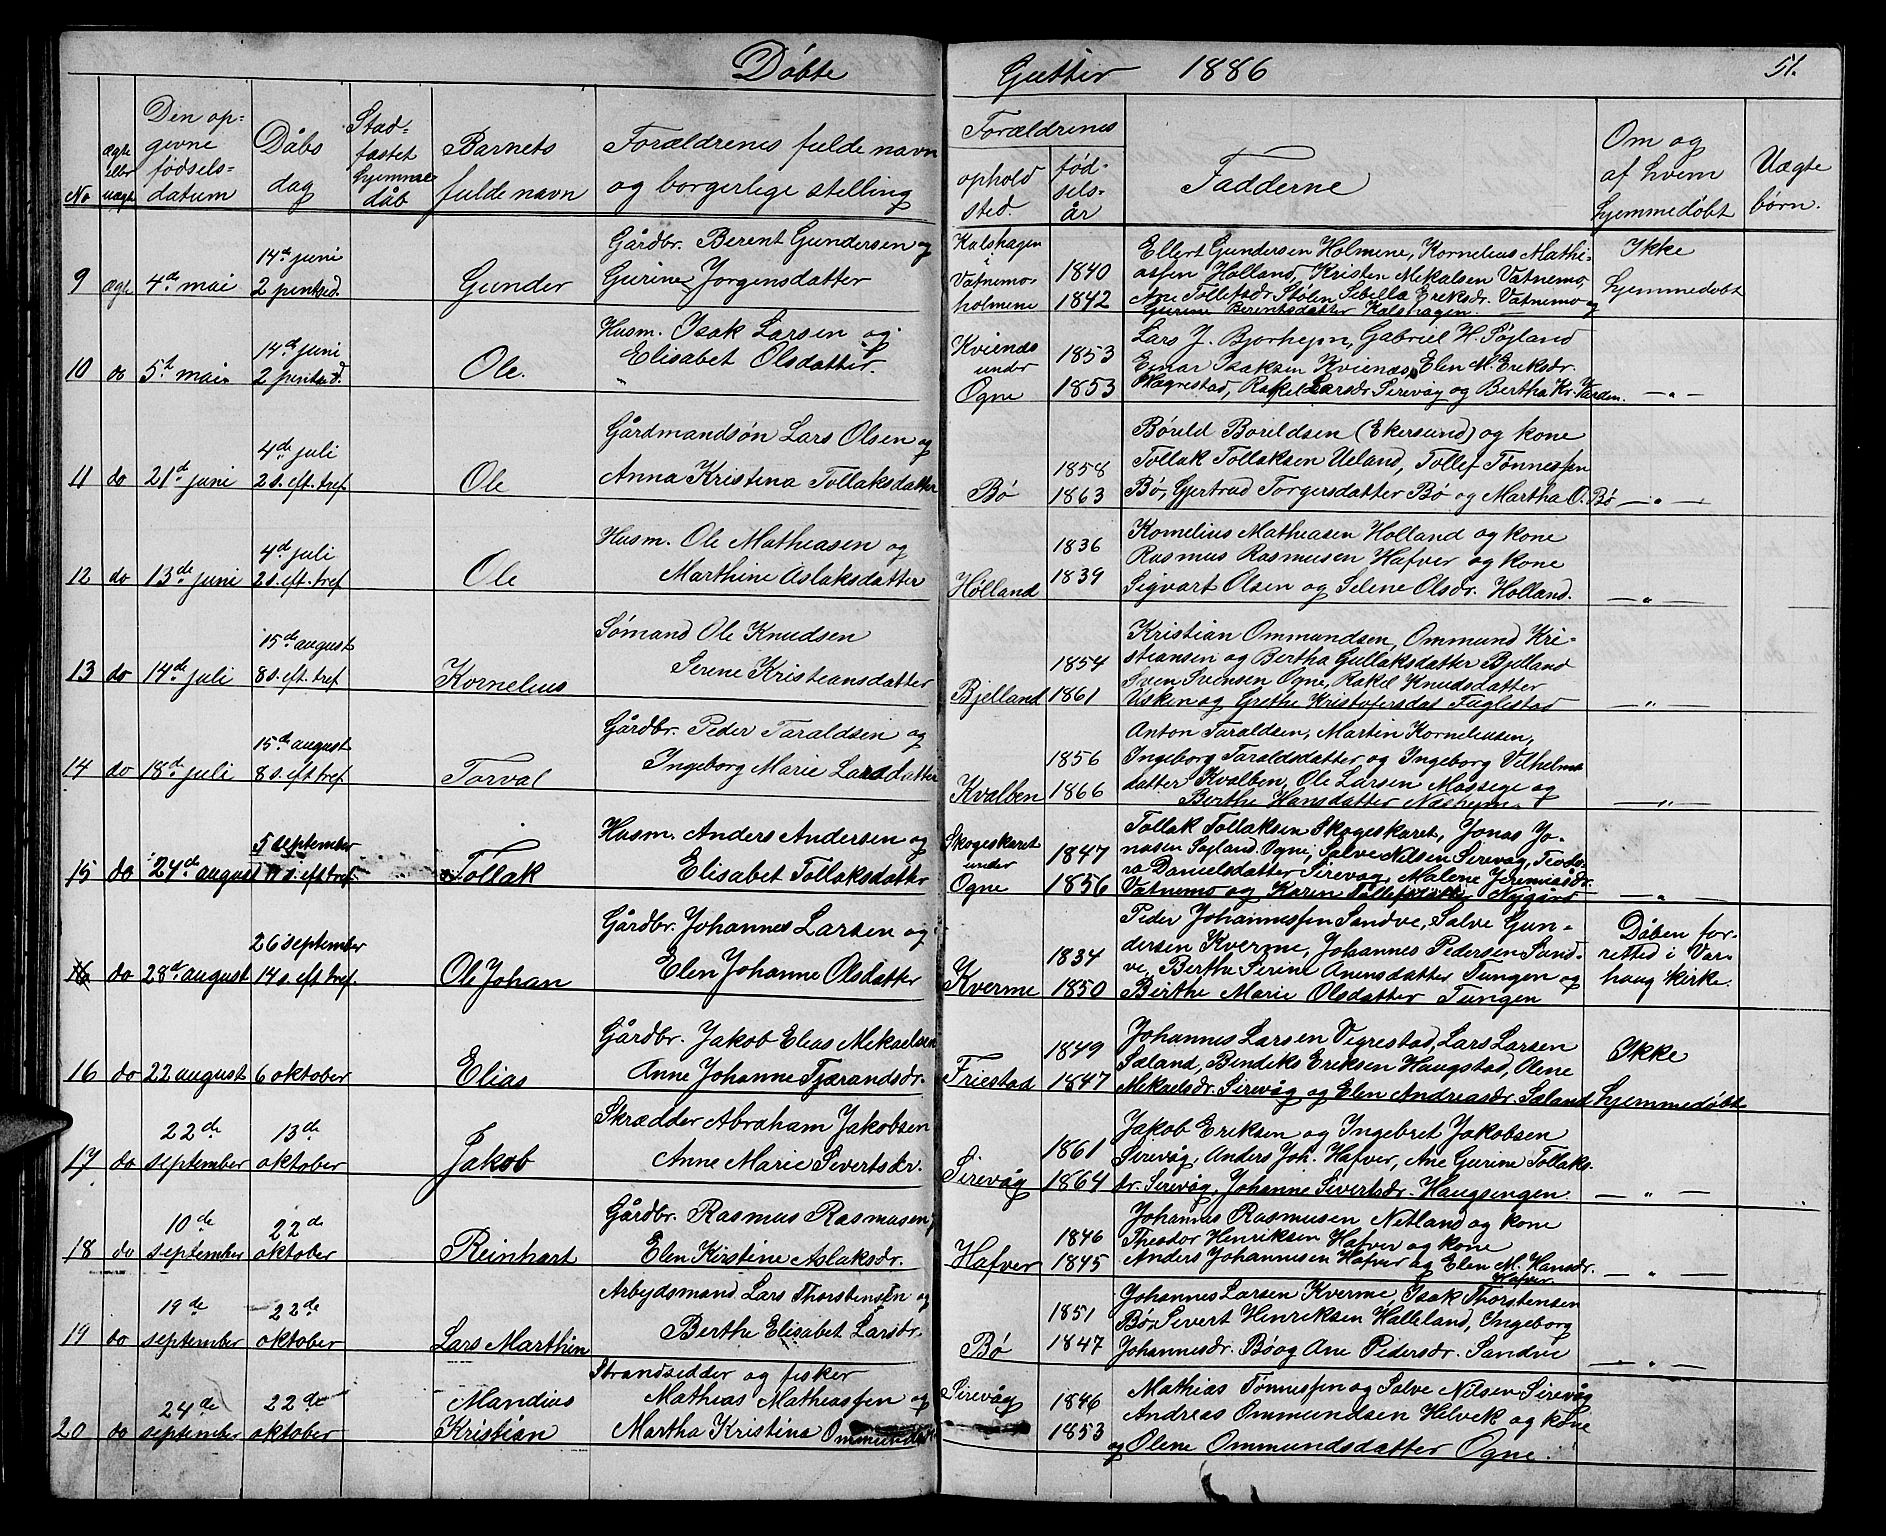 Döbte
Gutter 1886
51.
No
ægte eller uægte
Den opgivne fødselsdatum
Dåbs dag
Stadfæstet hjemmedåb
Barnets fulde navn
Forældrenes fulde navn og borgerlige stilling
Forældrenes
opholdsted.
fødselsår
Fadderne
Om og af hvem hjemmedøbt
Uægte børn.
9 ægte 4de mai
14de juni
2 pintsed.
Gunder
Gårdbr. Berent Gundersen og
Gurine Jorgensdatter
Kalshagen
i
Vatnemo-
holmene
1840
1842
Ellert Gundersen Holmene, Kornelius Mathi-
assen Holland, Kristen Mikalsen Vatnemo,
Ane Tollefsdr Stølen Sibella Eriksdr. Vatnemo og
Gurine Berentsdatter Kalshagen.
Ikke
hjemmedöbt
10 do 5te mai
14de juni
2 pintsed.
Ole.
Husm. Isak Larsen og
Elisabet Olsdatter.
Kvienas
under
Ogne
1853
1853
Lars J. Bjorhejm, Gabriel H. Søyland
Einar Isaksen Kvienas, Elen M. Eriksdr.
Hægrestad, Rakel Larsdr Sirevåg og Bertha Kr. Varden.
— " —
11 do 21de juni
4de juli
2 s. eft. tref.
Ole
Gårdmandsøn Lars Olsen og
Anna Kristina Tollaksdatter
Bö
1858
1863
Böreld Borildsen (Ekersund) og kone
Tollak Tollaksen Ueland, Tollef Tønnessen
Bö, Gjertrud Torgersdatter Bö og Martha O. Bö
— " —
12 do 13de juni
4de juli
2 s. eft. tref
Ole
Husm. Ole Mathiasen og
Marthine Aslaksdatter
Holland
1836
1839
Kornelius Mathiasen Holland og kone
Rasmus Rasmusen Hafver og kone
Sigvart Olsen og Selene Olsdr. Holland.
— " —
13 do 14de juli
15de august
8 s. eft. tref
Kornelius
Sømand Ole Knudsen
Serene Kristiansdatter
Bjelland
1854
1861
Kristian Ommundsen, Ommund Kri-
stiansen og Bertha Gullaksdatter Bjelland
Sven Svensen Ogne, Rakel Knudsdatter
Visken og Grethe Kristofersdat Fuglestad
— " —
14 do 18de juli
15de august
8 s. eft tref.
Torval
Gårdbr. Peder Taraldsen og
Ingeborg Marie Larsdatter
Kvalben
1856
1866
Anton Taraldsen, Martin Korneliusen,
Ingeborg Taraldsdatter og Ingeborg Vilhelms
datter Kvalben, Ole Larsen Mossige og
Berthe Hansdatter Næshejm.
— " —
15 do 24de august
5 september
11 s. eft tref.
Tollak
Husm. Anders Andersen og
Elisabet Tollaksdatter
Skogeskaret
under
Ogne
1847
1856
Tollak Tollaksen Skogeskaret, Jonas Jo-
nasen Søyland. Ogne, Salve Nilsen Sirevåg, Teodo-
ra Danielsdatter Sirevåg, Malene Jeremiasdr.
Vatnemo og Karen Tollefsdatter Nygård
— " —
16 do 28de august
26 september
14 s. eft tref.
Ole Johan
Gårdbr. Johannes Larsen og
Elen Johanne Olsdatter
Kverme
1834
1850
Peder Johannessen Sandve, Salve Gun-
dersen Kverme, Johannes Pedersen Sand-
ve, Berthe Serine Anensdatter Tungen og
Birthe Marie Olsdatter Tungen
Dåben for-
rettet i Var-
haug kirke.
16 do 22 august 6 oktober
Elias
Gårdbr. Jakob Elias Mikaelsen
Anne Johanne Tjærandsdr.
Friestad
1849
1847
Johannes Larsen Vigrestad, Lars Larsen
Saland, Bendiks Eriksen Haugstad, Olene
Mikaelsdr. Sirevåg og Elen Andreasdr. Saland
Ikke
hjemmedöbt
17 do
22de
september
13de
oktober
Jakob
Skrædder Abraham Jakobsen
Anne Marie Sivertsdr.
Sirevåg
1861
1864
Jakob Eriksen og Ingebret Jakobsen
Sirevåg, Anders Joh. Hafver, Ane Gurine Tollaks-
dr. Sirevåg, Johanne Sivertsdr. Haugsengen.
— " —
18 do
10de
september
22de
oktober
Reinhart
Gårdbr. Rasmus Rasmusen,
Elen Kirstine Aslaksdr.
Hafver
1846
1845
Johannes Rasmusen Netland og kone
Theodor Henriksen Hafver og kone
Anders Johannesen Hafver og Elen M. Hansdr.
Hafver.
— " —
19 do
19de
september
22de
oktober
Lars Marthin
Arbejdsmand Lars Thorstensen og
Berthe Elisabet Larsdr.
Bö
1851
1847
Johannes Larsen Kverme, Isak Thorstensen
Bö, Sivert Henriksen Halleland, Ingeborg
Johannesdr. Bö og Ane Pedersdr. Sandve
— " —
20 do
24de
september
22de
oktober
Mandius
Kristian
Strandsidder og fisker
Mathias Mathiassen og
Martha Kristina Ommundsdr
Sirevåg
1846
1853
Mathias Tønnessen og Salve Nilsen Sirevåg
Andreas Ommundsen Helvik og kone
og Olene Ommundsdatter Ogne.